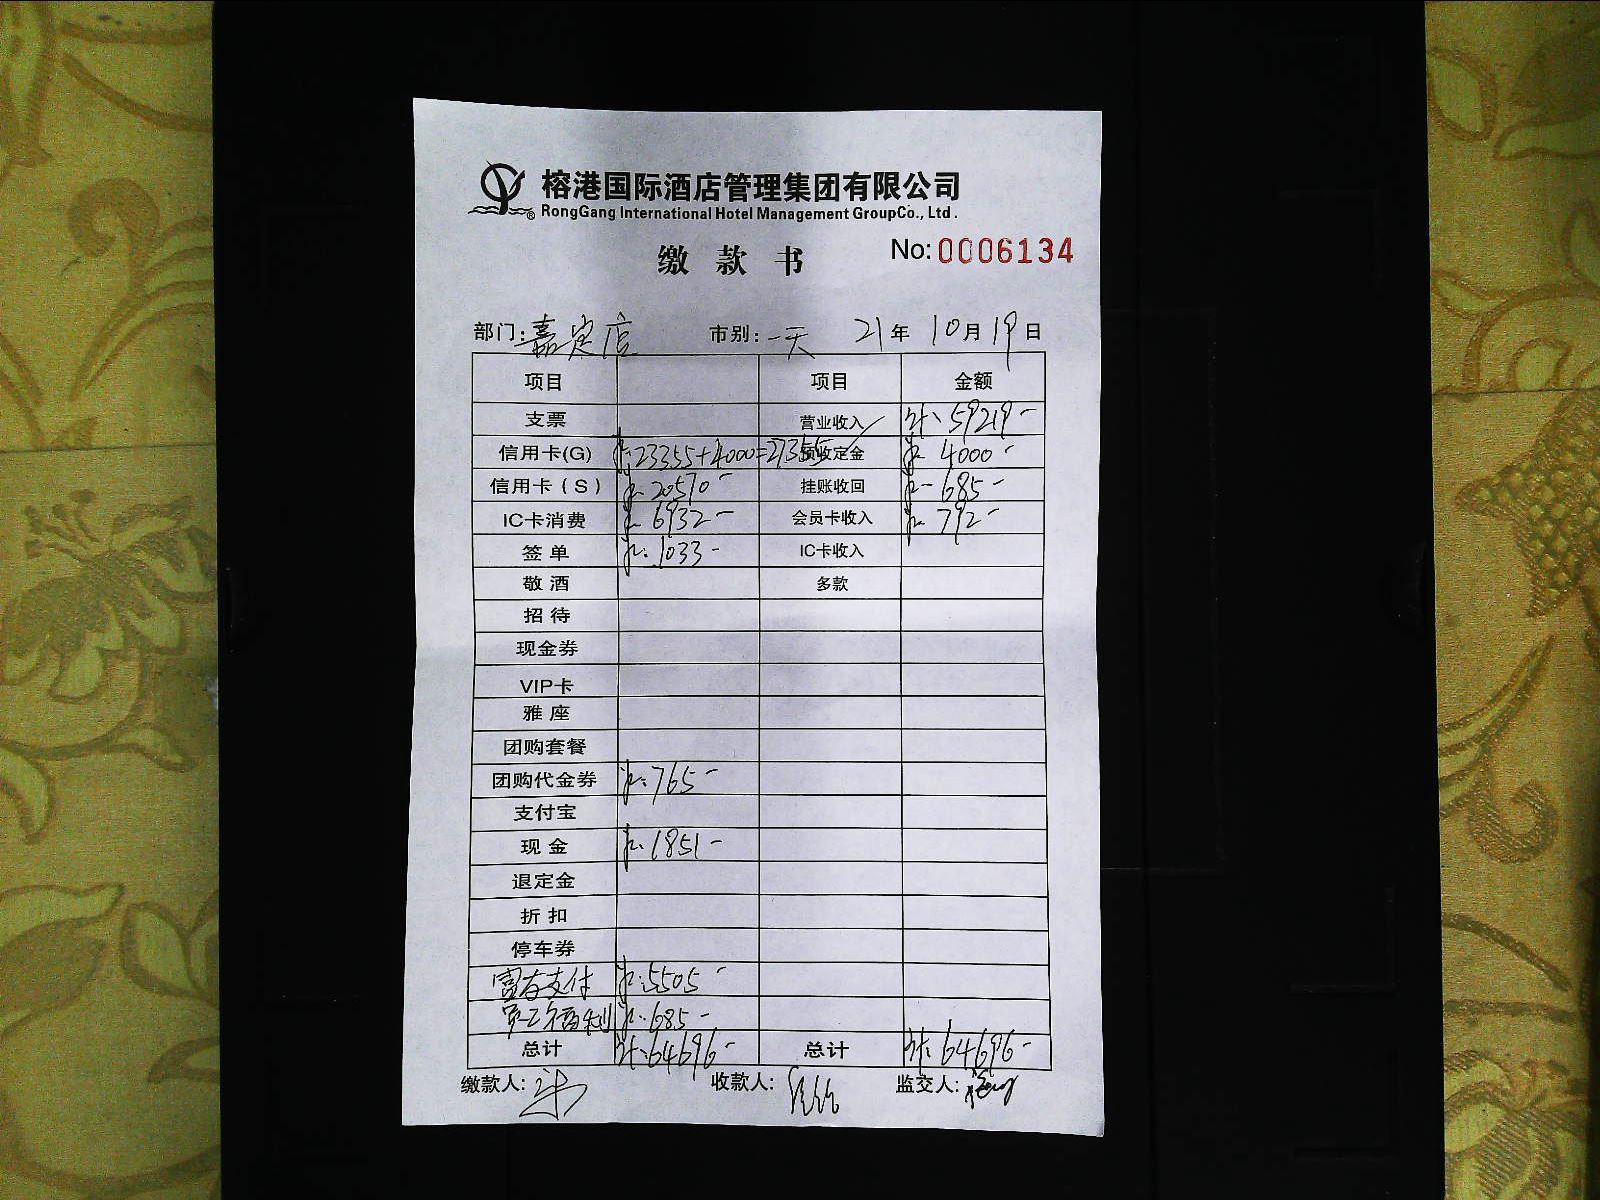 榕港国际酒店管理集团有限公司
RongGang International Hotel Management GroupCo., Ltd.
缴款书 No:0006134
部门:嘉定店 市别:一天 21年10月19日
项目 项目 金额
支票 营业收入 计:59219-
信用卡(G) 23355+4000=27355 预收定金 4000-
信用卡(S) 20570- 挂账收回 685-
IC卡消费 6932- 会员卡收入 792-
签单 1033- IC卡收入
敬酒 多款
招待
现金券
VIP卡
雅座
团购套餐
团购代金券 765-
支付宝
现金 1851-
退定金
折扣
停车券
富友支付 5505-
员工福利 685-
总计 计:64696- 总计 计:64696-
缴款人: 收款人: 监交人: